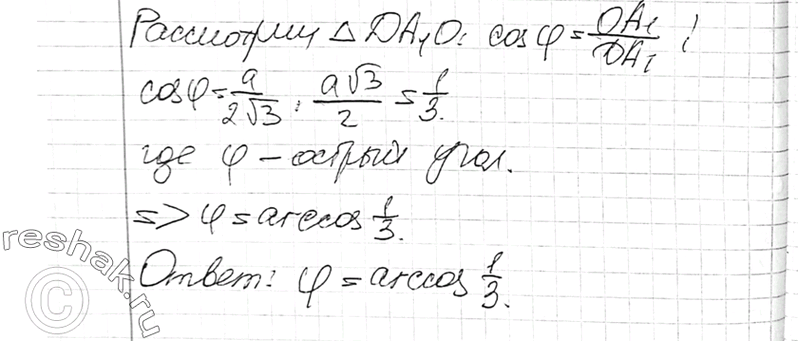 Рассмотрим △ DA₁O: cos φ = OA₁/DA₁ ;
cos φ = a/2√3 : a√3/2 = 1/3.
где φ – острый угол.
=> φ = arccos 1/3.
Ответ: φ = arccos 1/3.
© reshak.ru